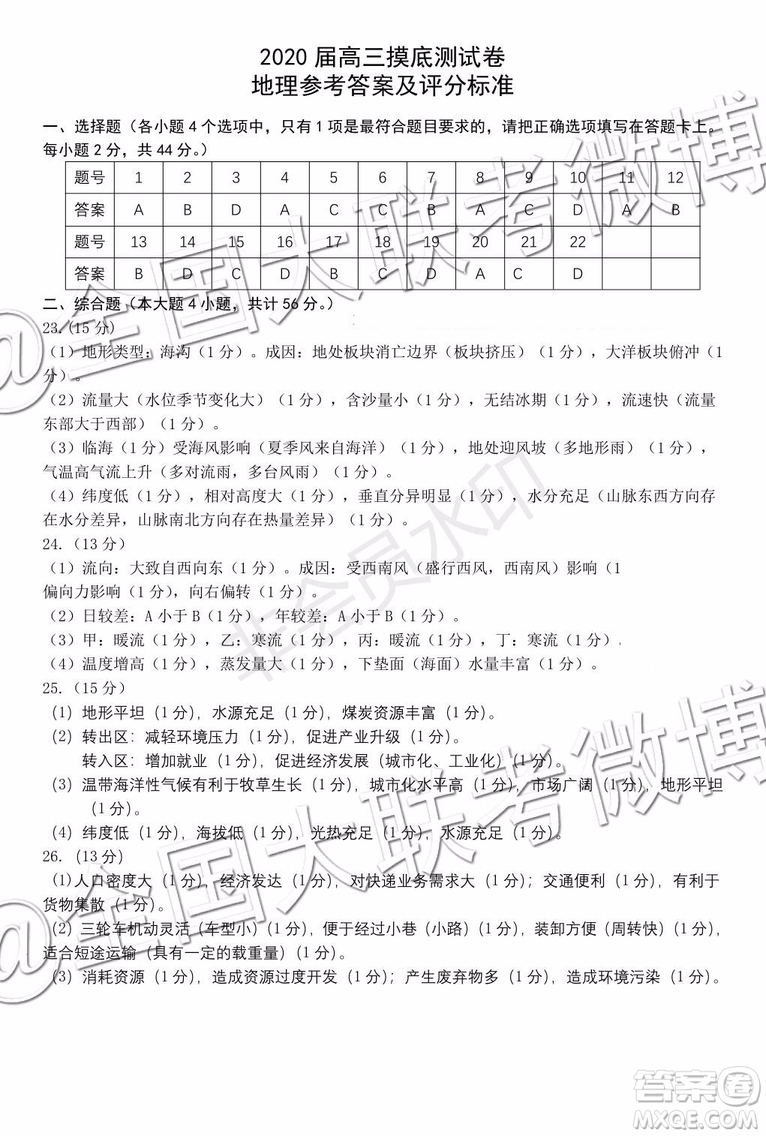 2020 届高三摸底测试卷
地理参考答案及评分标准
一、选择题（各小题 4 个选项中，只有 1 项是最符合题目要求的，请把正确选项填写在答题卡上。
每小题 2 分，共 44 分。）
题号 1 2 3 4 5 6 7 8 9 10 11 12
答案 A B D A C C B A C D A B
题号 13 14 15 16 17 18 19 20 21 22
答案 B D C C B D D A C C D
二、综合题（本大题 4 小题，共计 56 分。）
23.(15 分)
（1）地形类型：海沟（1 分）。成因：地处板块消亡边界（板块挤压）（1 分），大洋板块俯冲（1
分）。
（2）流量大（水位季节变化大）（1 分），含沙量小（1 分），无结冰期（1 分），流速快（流量
东部大于西部）（1 分）。
（3）临海（1 分）受海风影响（夏季风来自海洋）（1 分），地处迎风坡（多地形雨）（1 分），
气温高气流上升（多对流雨，多台风雨）（1 分）。
（4）纬度低（1 分），相对高度大（1 分），垂直分异明显（1 分），水分充足（山脉东西方向存
在水分差异，山脉南北方向存在热量差异）（1 分）。
24.（13 分）
（1）流向：大致自西向东（1 分）。成因：受西南风（盛行西风，西南风）影响（1
偏向力影响（1 分），向右偏转（1 分）。
（2）日较差：A 小于 B（1 分），年较差：A 小于 B（1 分）。
（3）甲：暖流（1 分），乙：寒流（1 分），丙：暖流（1 分），丁：寒流（1 分）.
（4）温度增高（1 分），蒸发量大（1 分），下垫面（海面）水量丰富（1 分）。
25.（15 分）
（1）地形平坦（1 分），水源充足（1 分），煤炭资源丰富（1 分）。
（2）转出区：减轻环境压力（1 分），促进产业升级（1 分）。
转入区：增加就业（1 分），促进经济发展（城市化、工业化）（1 分）。
（3）温带海洋性气候有利于牧草生长（1 分），城市化水平高（1 分），市场广阔（1 分），地形平坦
（1 分）。
（4）纬度低（1 分），海拔低（1 分），光热充足（1 分），水源充足（1 分）。
26.（13 分）
（1)人口密度大（1 分），经济发达（1 分），对快递业务需求大（1 分）；交通便利（1 分），利于
货物集散（1 分）。
（2）三轮车机动灵活（车型小）（1 分），便于行经小巷（小路）（1 分），装卸方便（周转快）（1 分），
适合短途运输（具有一定的载重量）（1 分）。
（3）消耗资源（1 分），造成资源过度开发（1 分）；产生废弃物多（1 分），造成环境污染（1 分）。
@全国大联考微博
@全国大联考微博
非会员水印
答案卷
MXQE.COM